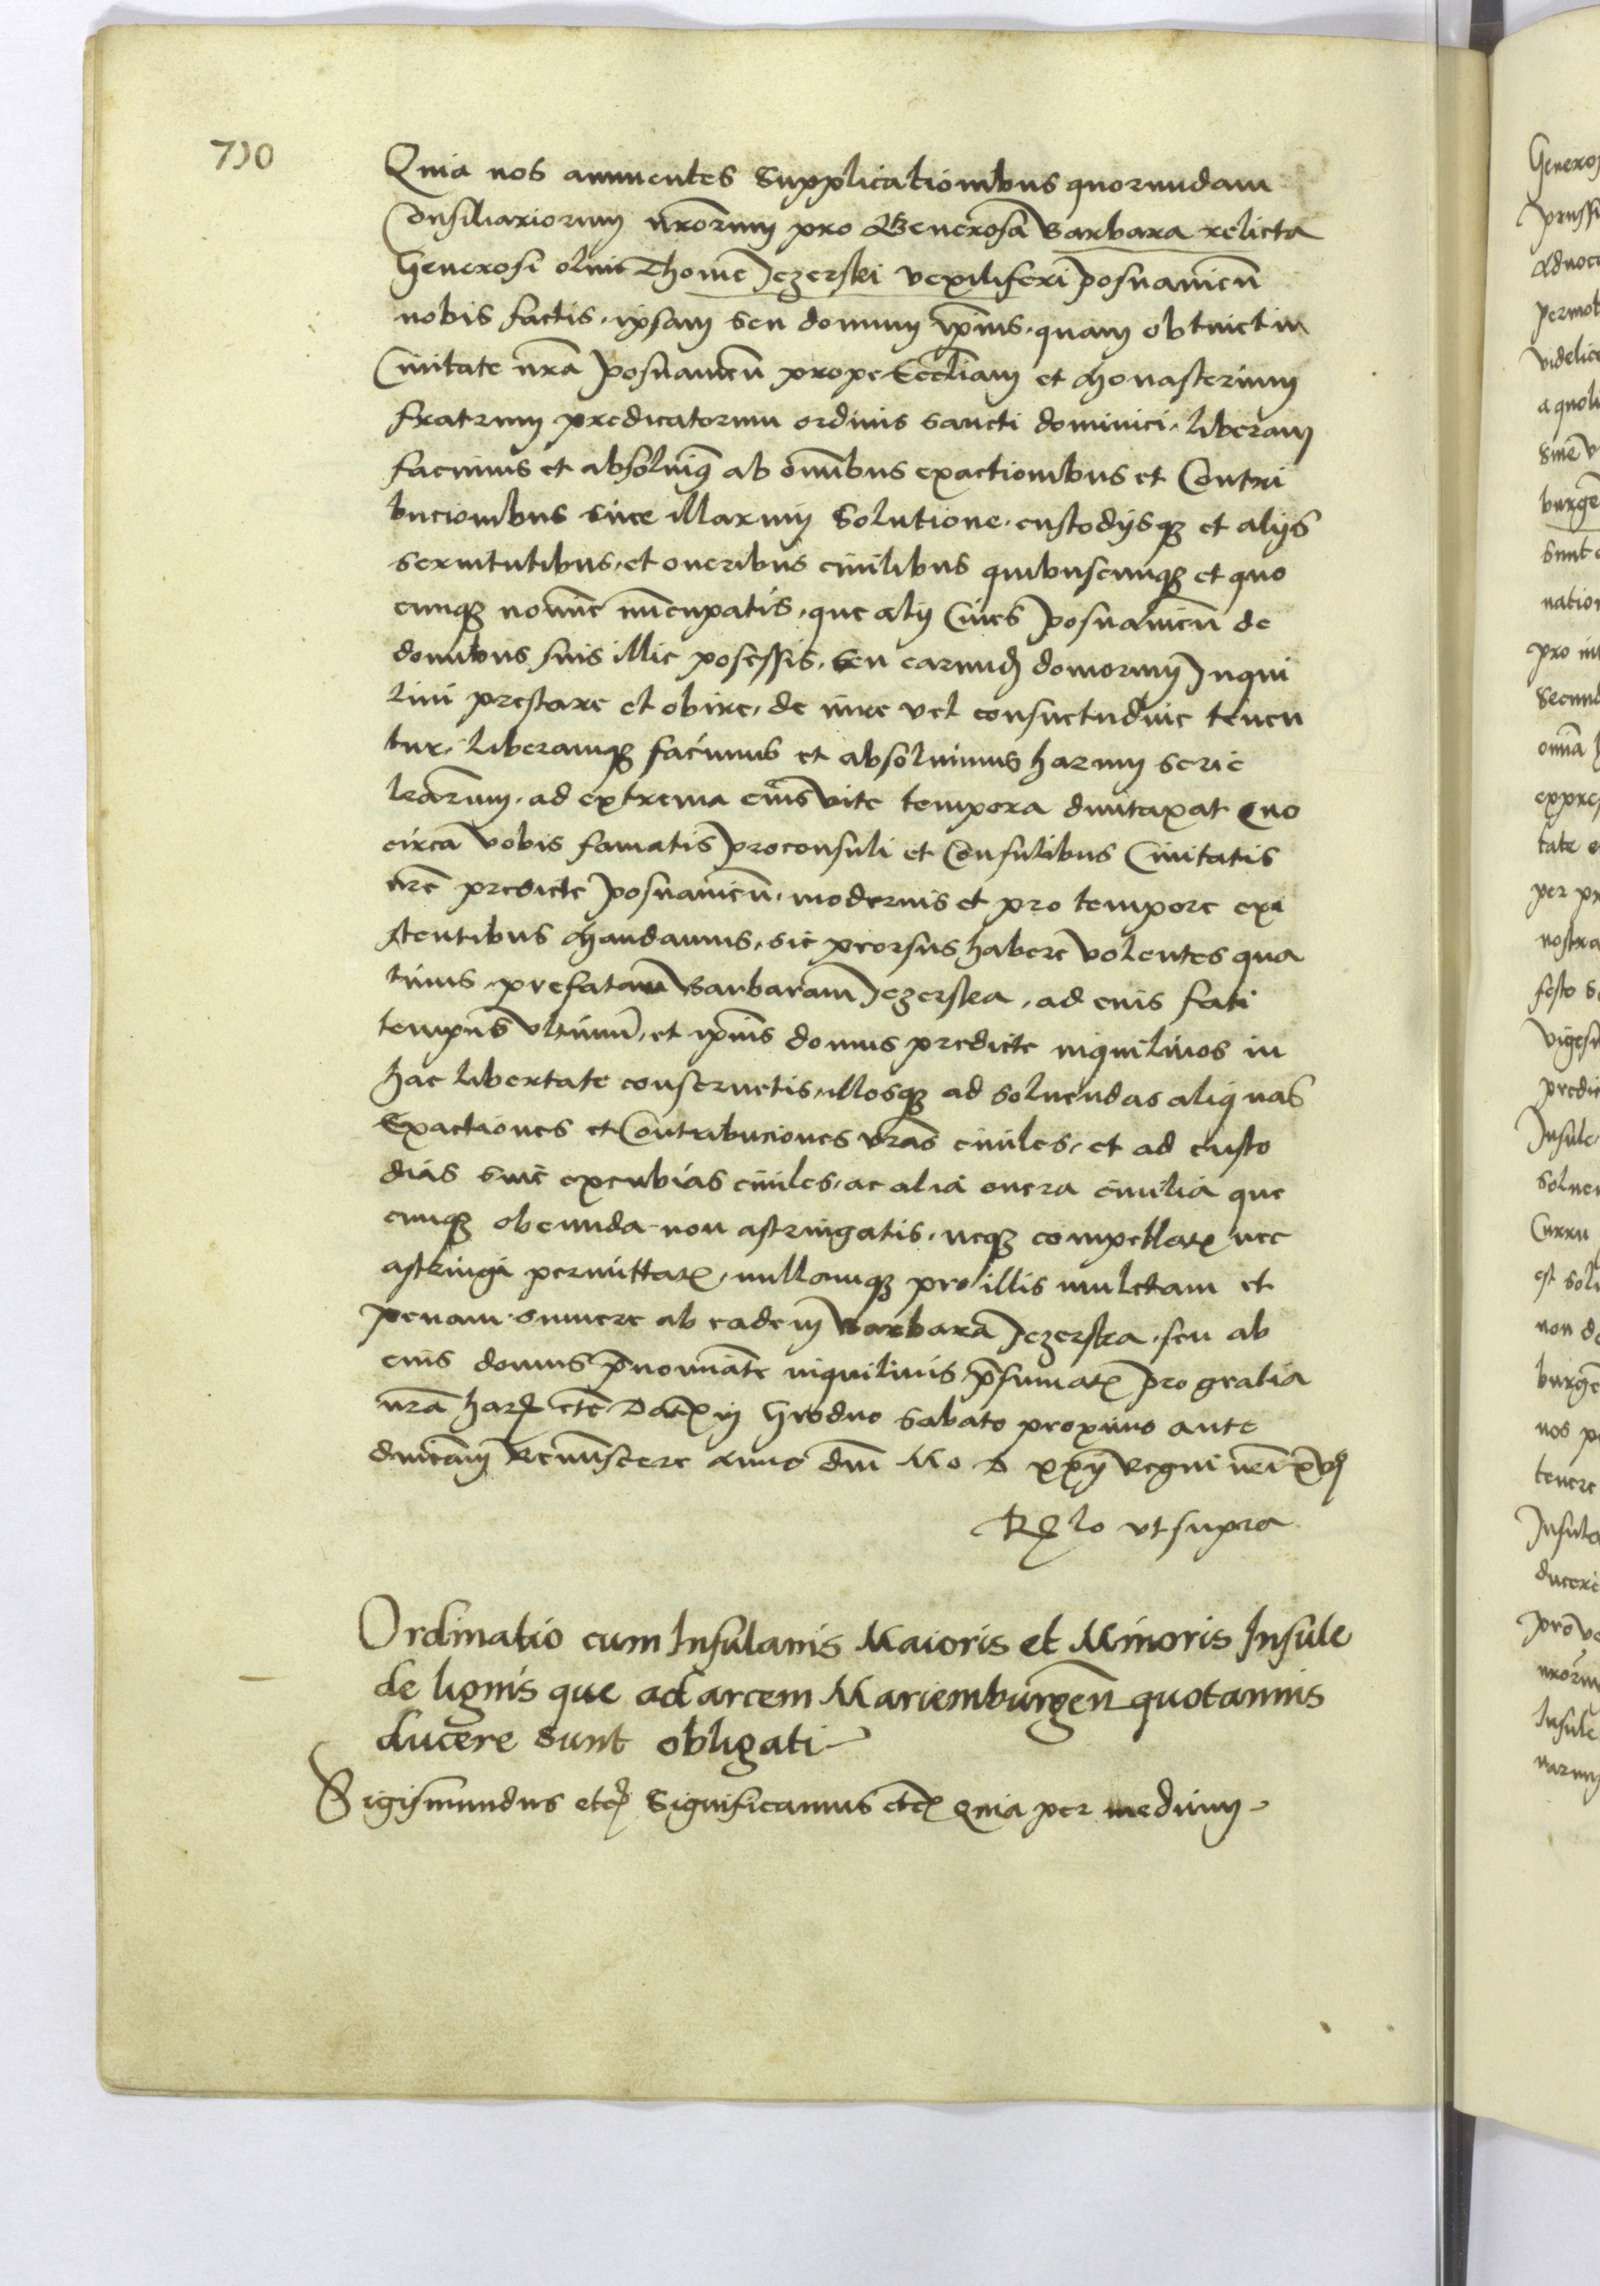 710
Quia nos annuentes Supplicationibus quorundam
Consiliariorum nrorum pro Generosa Barbara relicta
Generosi olim Thome Jezerski vexiliferi posnanien
nobis factis, ipsam seu domum ipius, quam obtinet in
Civitate nra posnanien prope Eccliam et Monasterium
fratrum predicatorum ordinis sancti dominici, liberam
facimus et absolvimus ab omibus exactionibus et Contri
bucionibus sive illarum Solutione, custodijsq et alijs
servitutibus, et oneribus civilibus quibuscunq et quo
cunq nomine nuncupatis, que alij Cives posnanien de
domibus suis illic possessis, seu earund domorum Inqui
lini prestare et obire, de iure vel consuetudine tenen
tur, liberamq facimus et absolvimus harum serie
lrarum, ad extrema eius vite tempora duntaxat Quo
circa vobis famatis proconsuli et Consulibus Civitatis
nre predicte posnanien, modernis et pro tempore exi
stentibus Mandamus, sic prorsus habere volentes qua
tinus, prefatam Barbaram Jezerska, ad eius fati
tempus ultimu, et ipius domus predicte inquilinos in
hac libertate conservetis, illosq ad solvendas aliquas
Exactiones et Contribuciones vras civiles, et ad custo
dias sive excubias civiles, ac alia onera civilia que
cunq obeunda non astringatis, neq compellatis nec
astringi permittatis, nullamq pro illis mulctam et
penam sumere ab eadem Barbara Jezerska, seu ab
eius domus pnominate inquilinis psumatis pro gratia
nra hard etc Datis in Grodno Sabato proximo ante
dnicam Reminiscere Anno dni Mo D xxij Regni nri xvj
Rd lo ut supra
Ordinatio cum Insulanis Maioris et Minoris Insule
de lignis que ad arcem Mariemburgen quotannis
ducere sunt obligati
Sigismundus etc Significamus etc Quia per medium